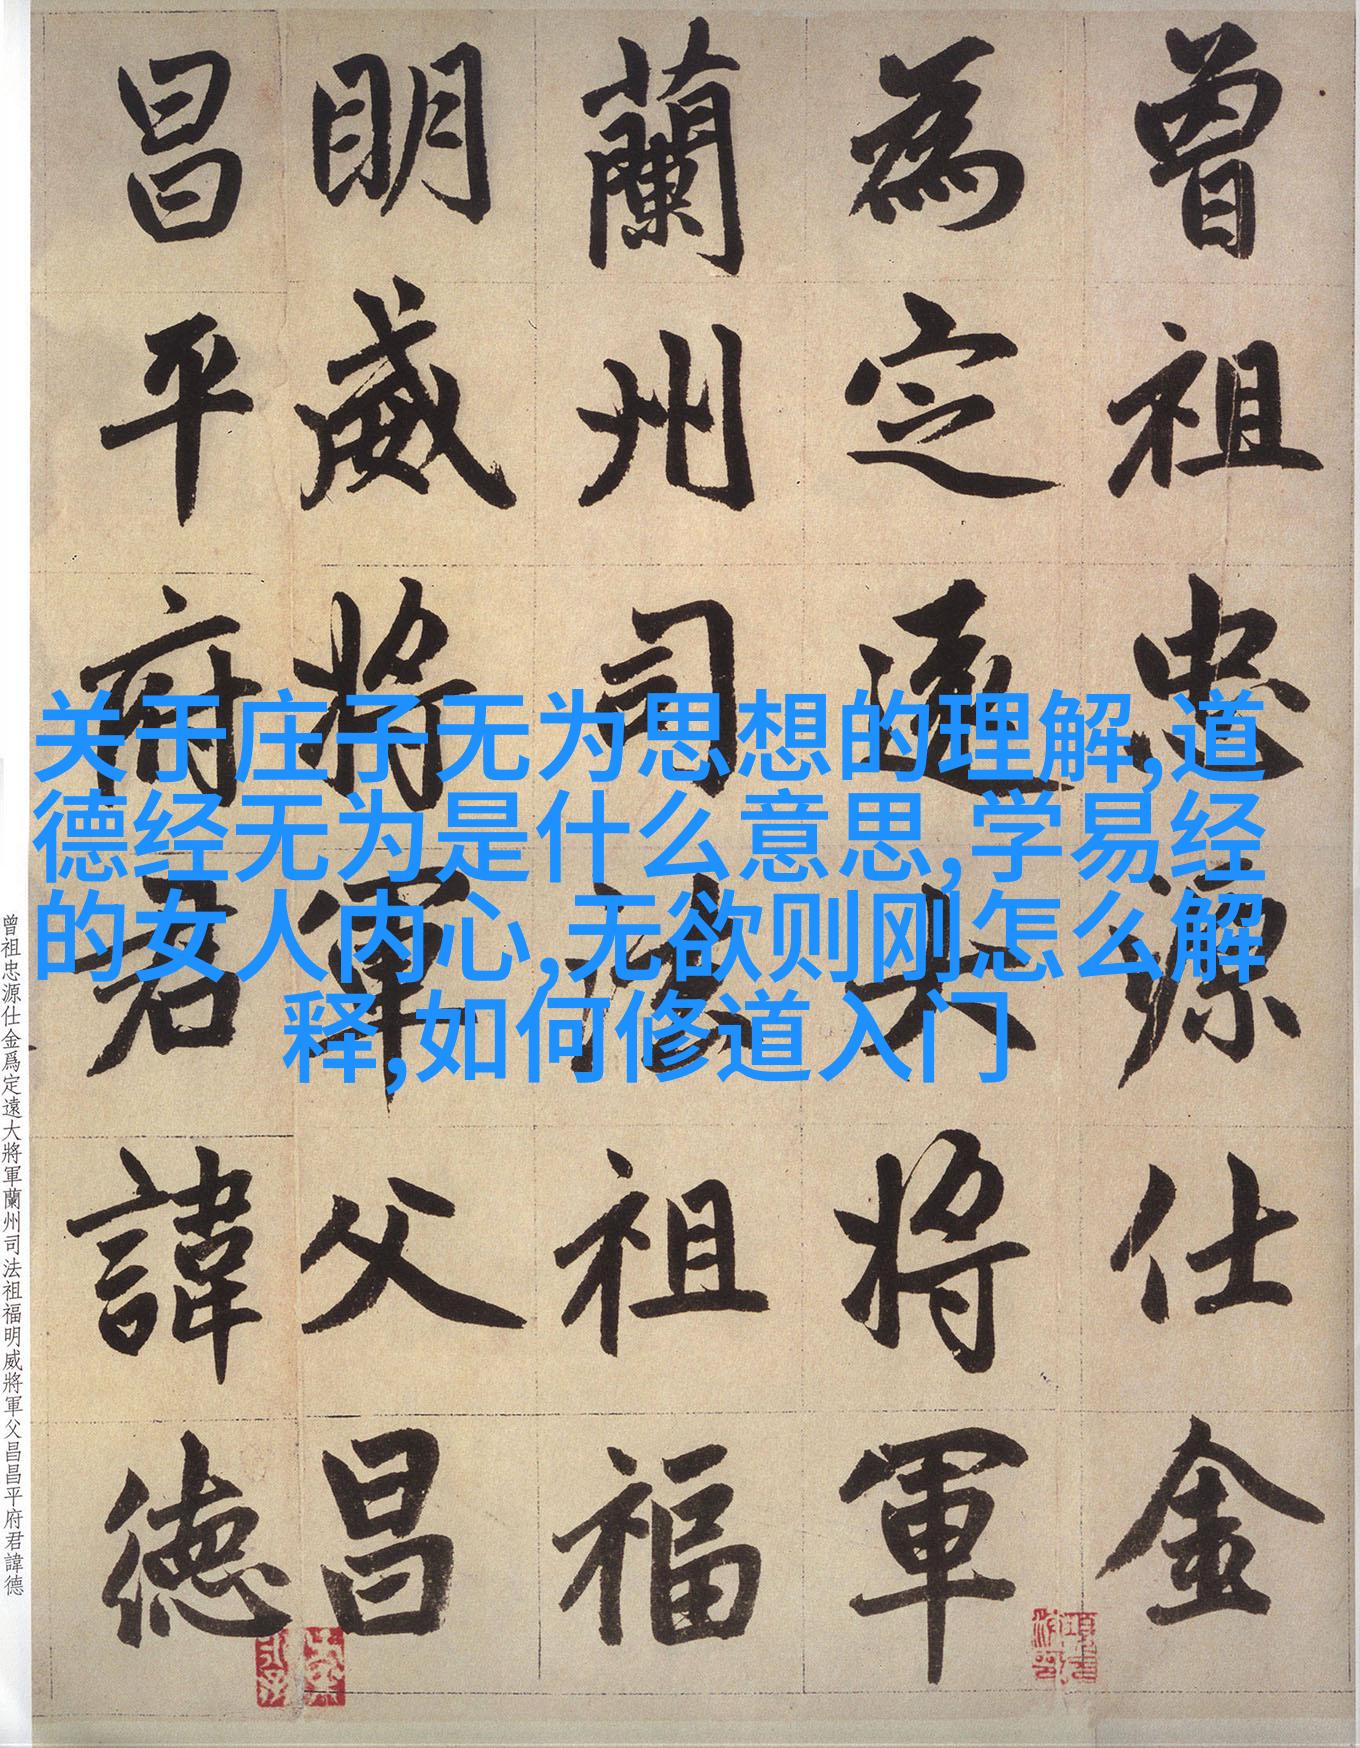 曾祖忠源仕金
為定遠大將軍
蘭州司法祖福
明威將軍父昌
昌平府君諱德
关于庄子无为思想的理解,道
德经无为是什么意思,学易经
的女人内心,无欲则刚怎么解
释,如何修道入门
曾祖忠源仕金爲定遠大將軍蘭州司法祖福明威將軍父昌昌平府君諱德